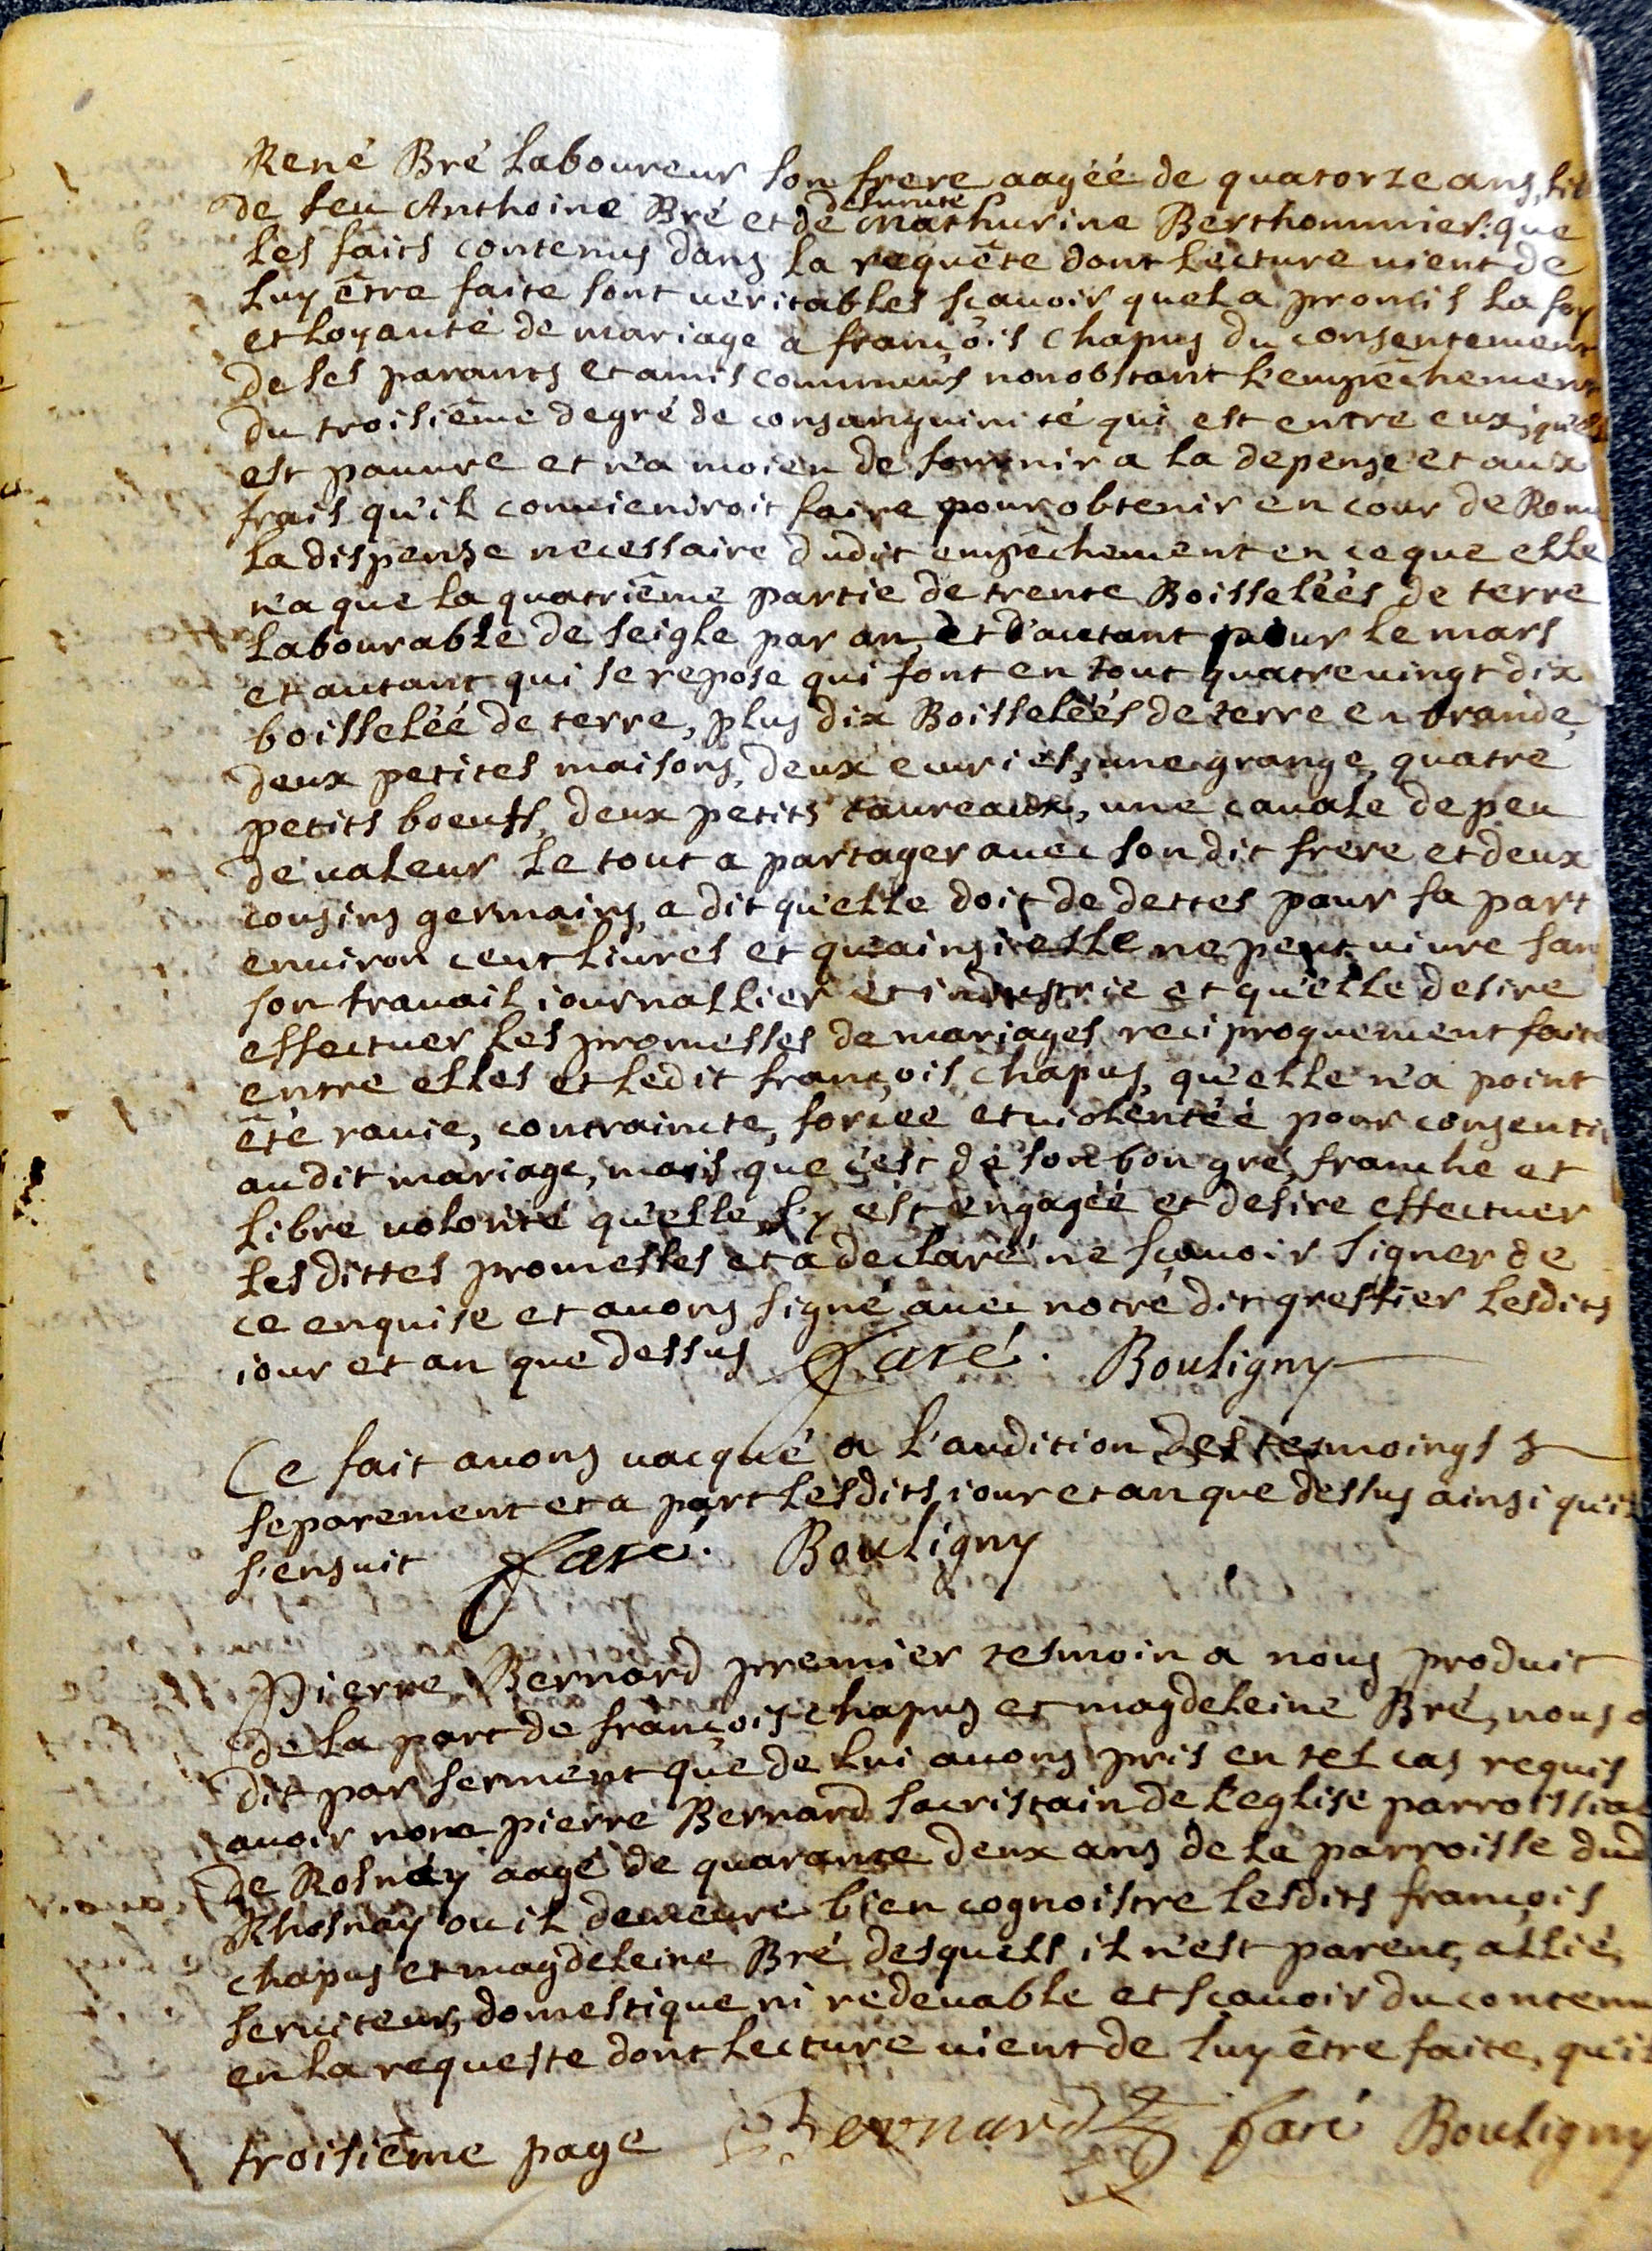 René Bré laboureur son frere aagéé de quatorze ans, fil
de feu Anthoine Bré et de defunte Mathurine Berthommier: que
les faits contenus dans la requête dont lecture vient de
luy être faite sont veritables sçavoir quela promis la foy
et loyauté de mariage a françois chapus du consentement
de ses parants et amis communs nonobstant l'empêchement
du troisiême degré de consanguinité qui est entre eux; qu'el
est pauvre et n'a moien de fournir a la depense et aux
frais qu'il conviendroit faire pour obtenir en cour de Rome
la dispense necessaire dudit empêchement en ce que elle
n'a que la quatriême partie de trente Boisseléés de terre
labourable de seigle par an, et d'autant pour le mars
et autant qui se repose qui font en tout quatre vingt dix
boisseléé de terre, plus dix Boisseléés de terre en brande,
deux petites maisons, deux ecuries, une grange, quatre
petits boeufs, deux petits taureaux, une cavale de peu
de valeur le tout a partager avec son dit frere et deux
cousins germains, a dit qu'elle doit de dettes pour sa part
environ cent livres et qu'ainsi elle ne peut vivre san
son travail iournallier et industrie et qu'elle desire
effectuer les promesses de mariages reciproquement faite
entre elles et ledit françois chapus, qu'elle n'a point
été ravie, contraincte, forcee et violentéé pour consenti
au dit mariage, mais que c'est de son bon gré, franche et
libre volonté qu'elle s'y est engagéé et desire effectuer
lesdittes promesses et a declaré ne sçavoir signer de
ce enquise et avons signé avec notre dit greffier lesdits
iour et an que dessus Faré. Bouligny
Ce fait avons vacqué a l'audition des tesmoings &
separement et a part lesdits iour et an que dessus ainsi qu'il
s'ensuit Faré. Bouligny
Pierre Bernard premier tesmoin a nous produit
de la part de françois chapus et magdeleine Bré, nous a
dit par serment que de lui avons pris en tel cas requis
avoir nom pierre Bernard sacristain de l'eglise parroissial
de Rosnay aagé de quarante deux ans de la parroisse dud
Rhosnay ou il demeure bien cognoistre lesdits françois
chapus et magdeleine Bré desquels il n'est parent, allié,
serviteur, domestique ni redevable et sçavoir du contenu
en la requeste dont lecture vient de luy être faite, qu'il
troisiême page Bernard Faré Bouligny